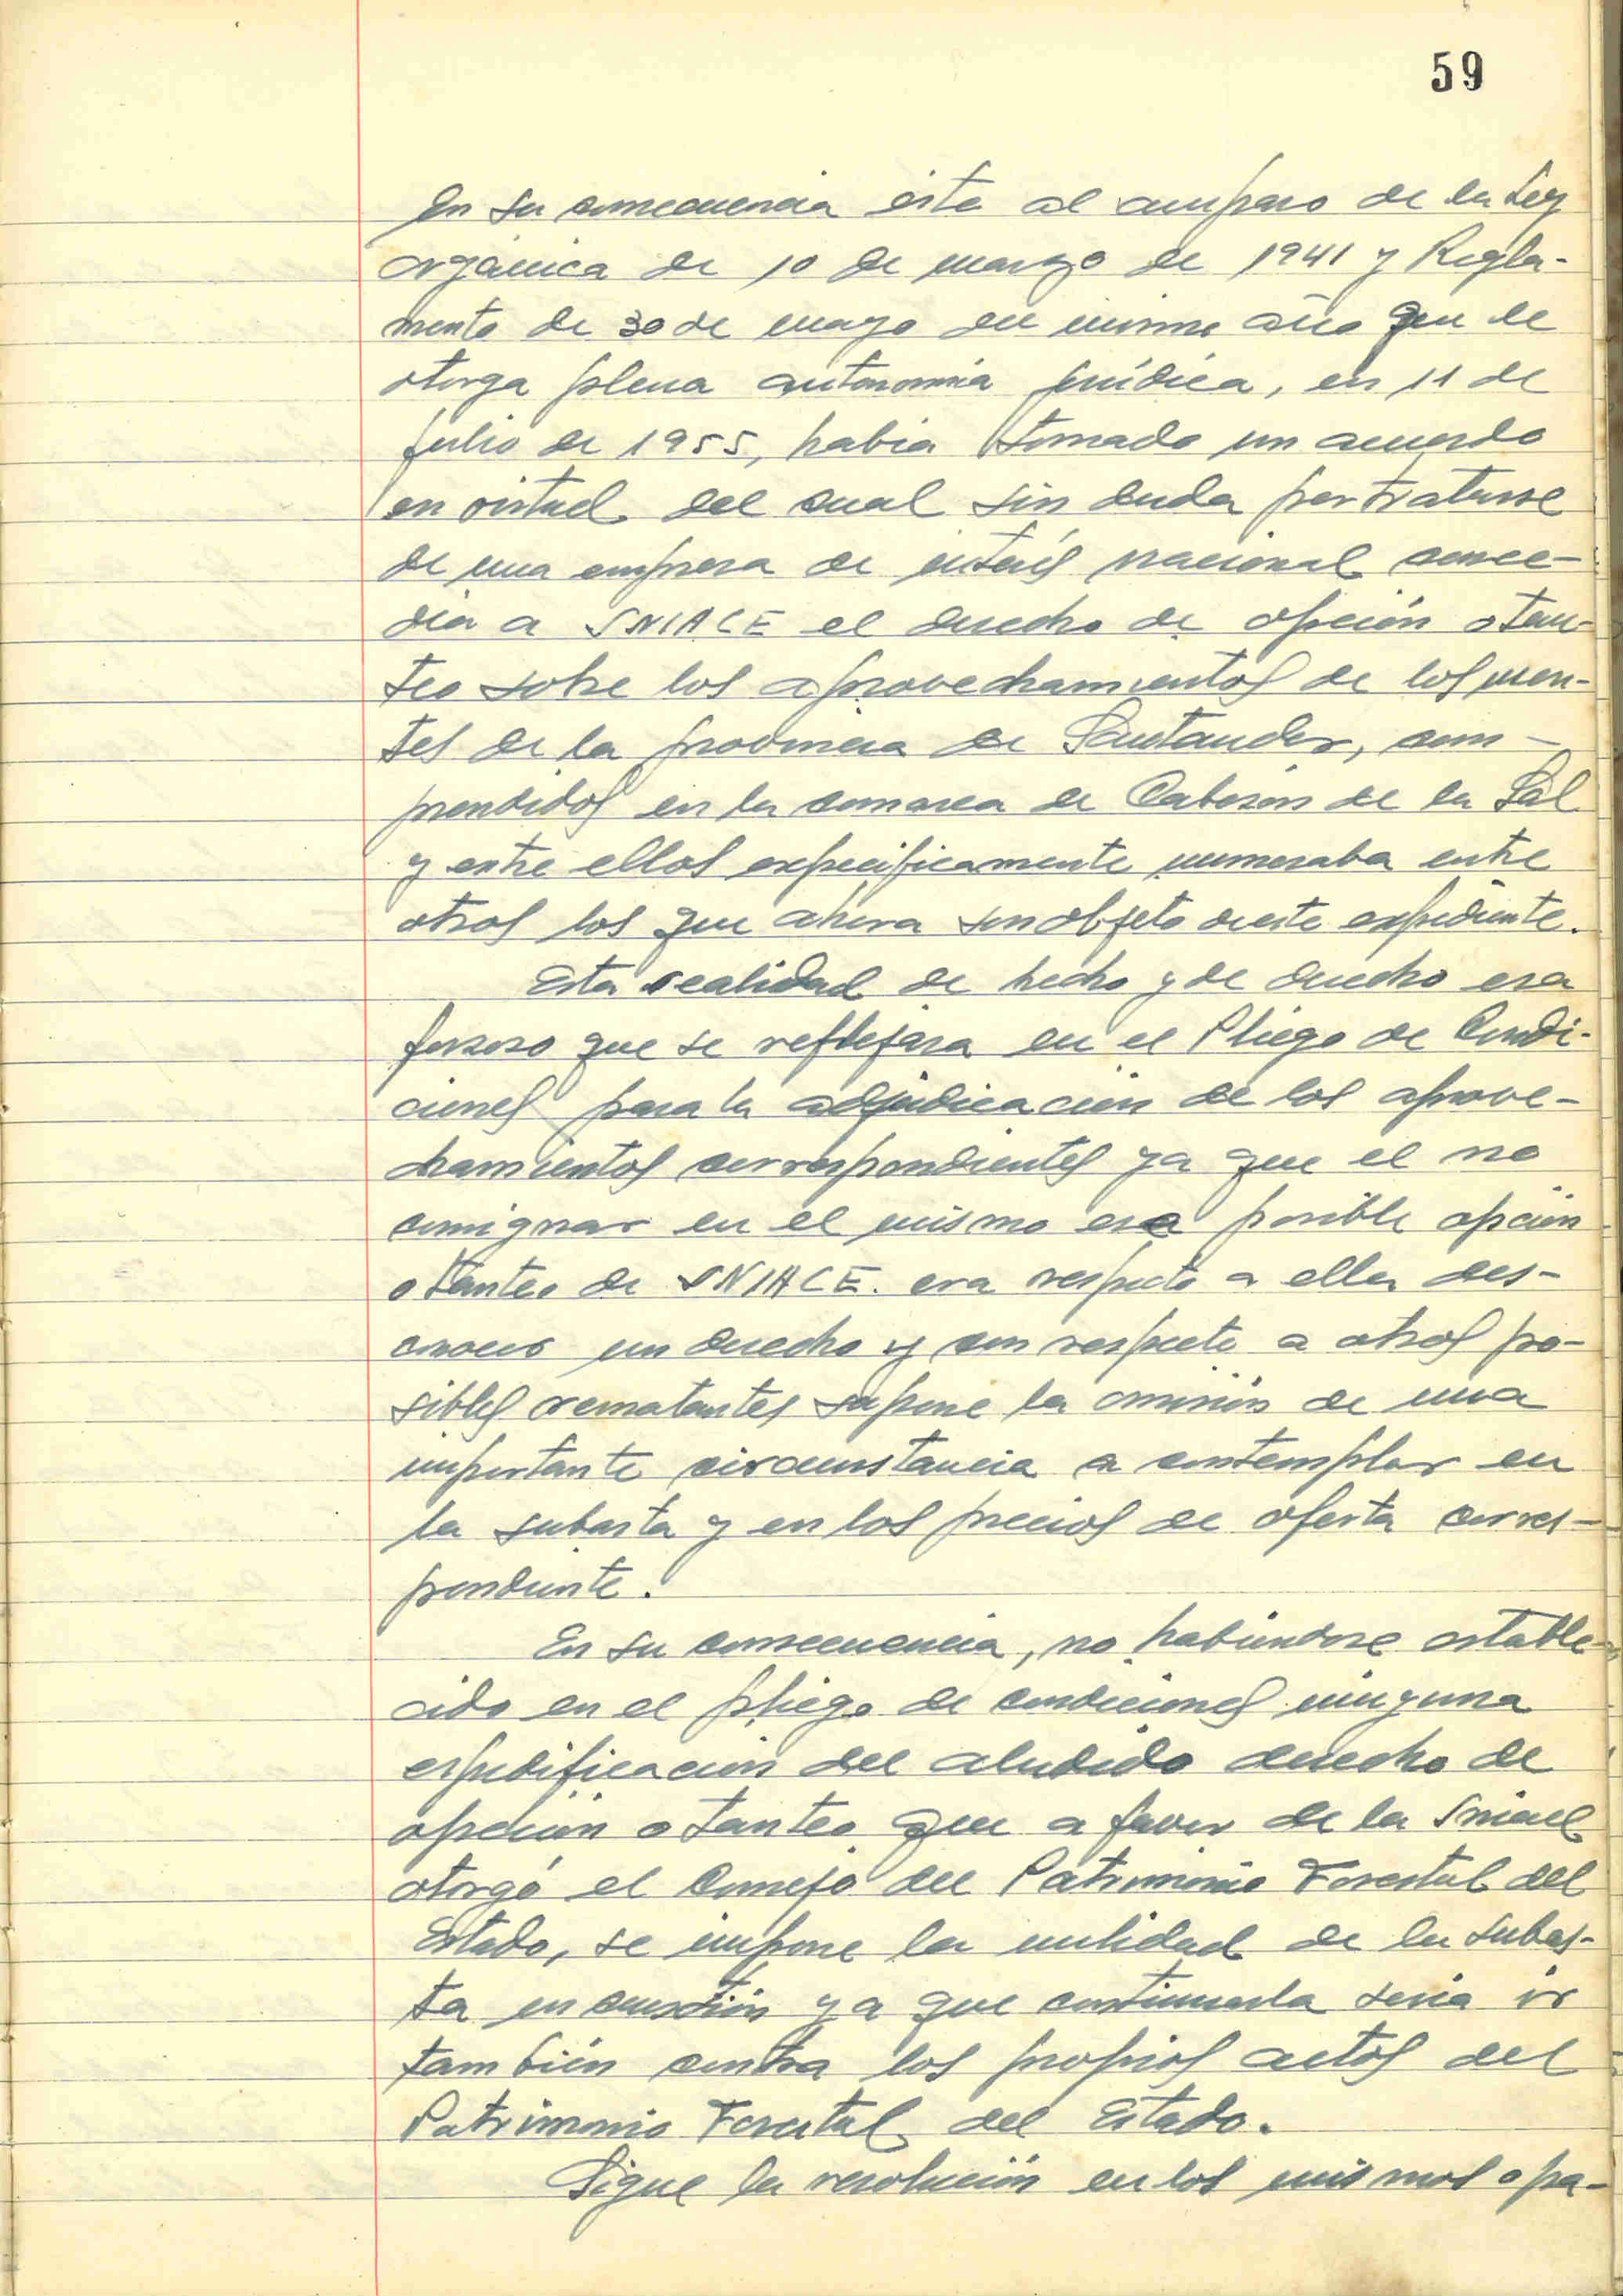 59
En su consecuencia éste al amparo de la Ley
orgánica de 10 de marzo de 1941 y Regla-
mento de 30 de mayo del mismo año que le
otorga plena autonomía jurídica, en 11 de
julio de 1955, había tomado un acuerdo
en virtud del cual sin duda por tratarse
de una empresa de interés nacional conce-
día a SNIACE el derecho de opción o tan-
teo sobre los aprovechamientos de los mon-
tes de la provincia de Santander, com-
prendidos en la comarca de Cabezón de la Sal
y entre ellos especificamente numeraba entre
otros los que ahora son objeto de este expediente.
Esta realidad de hecho y de derecho era
forzoso que se reflejara en el Pliego de Condi-
ciones para la adjudicación de los aprove-
chamientos correspondientes ya que el no
consignar en el mismo esa posible opción
o tanteo de SNIACE. era respecto a ella des-
conocer un derecho y con respecto a otros po-
sibles rematantes supone la omisión de una
importante circunstancia a contemplar en
la subasta y en los precios de oferta corres-
pondiente.
En su consecuencia, no habiéndose estable-
cido en el pliego de condiciones ninguna
especificación del aludido derecho de
opción o tanteo que a favor de la Sniace
otorgó el Consejo del Patrimonio Forestal del
Estado, se impone la nulidad de la subas-
ta en cuestión ya que continuarla sería ir
también contra los propios actos del
Patrimonio Forestal del Estado.
Sigue la resolución en los mismos o pa-